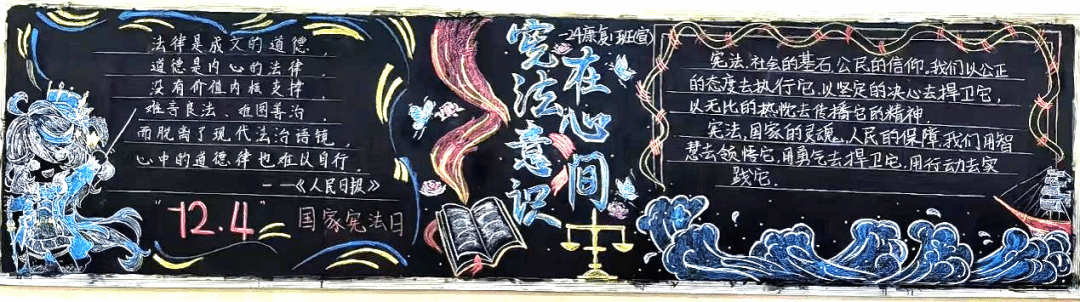 法律是成文的道德,
道德是内心的法律,
没有价值内核支撑,
难寻良法、难图善治,
而脱离了现代法治语镜,
心中的道德律也难以自行.
——《人民日报》
"12.4"
国家宪法日
宪法意识
在心间
-24康复1班(宣)
宪法,社会的基石,公民的信仰.我们以公正
的态度去执行它,以坚定的决心去捍卫它,
以无比的热忱去传播它的精神.
宪法,国家的灵魂,人民的保障,我们用智
慧去领悟它,用勇气去捍卫它,用行动去实
践它.